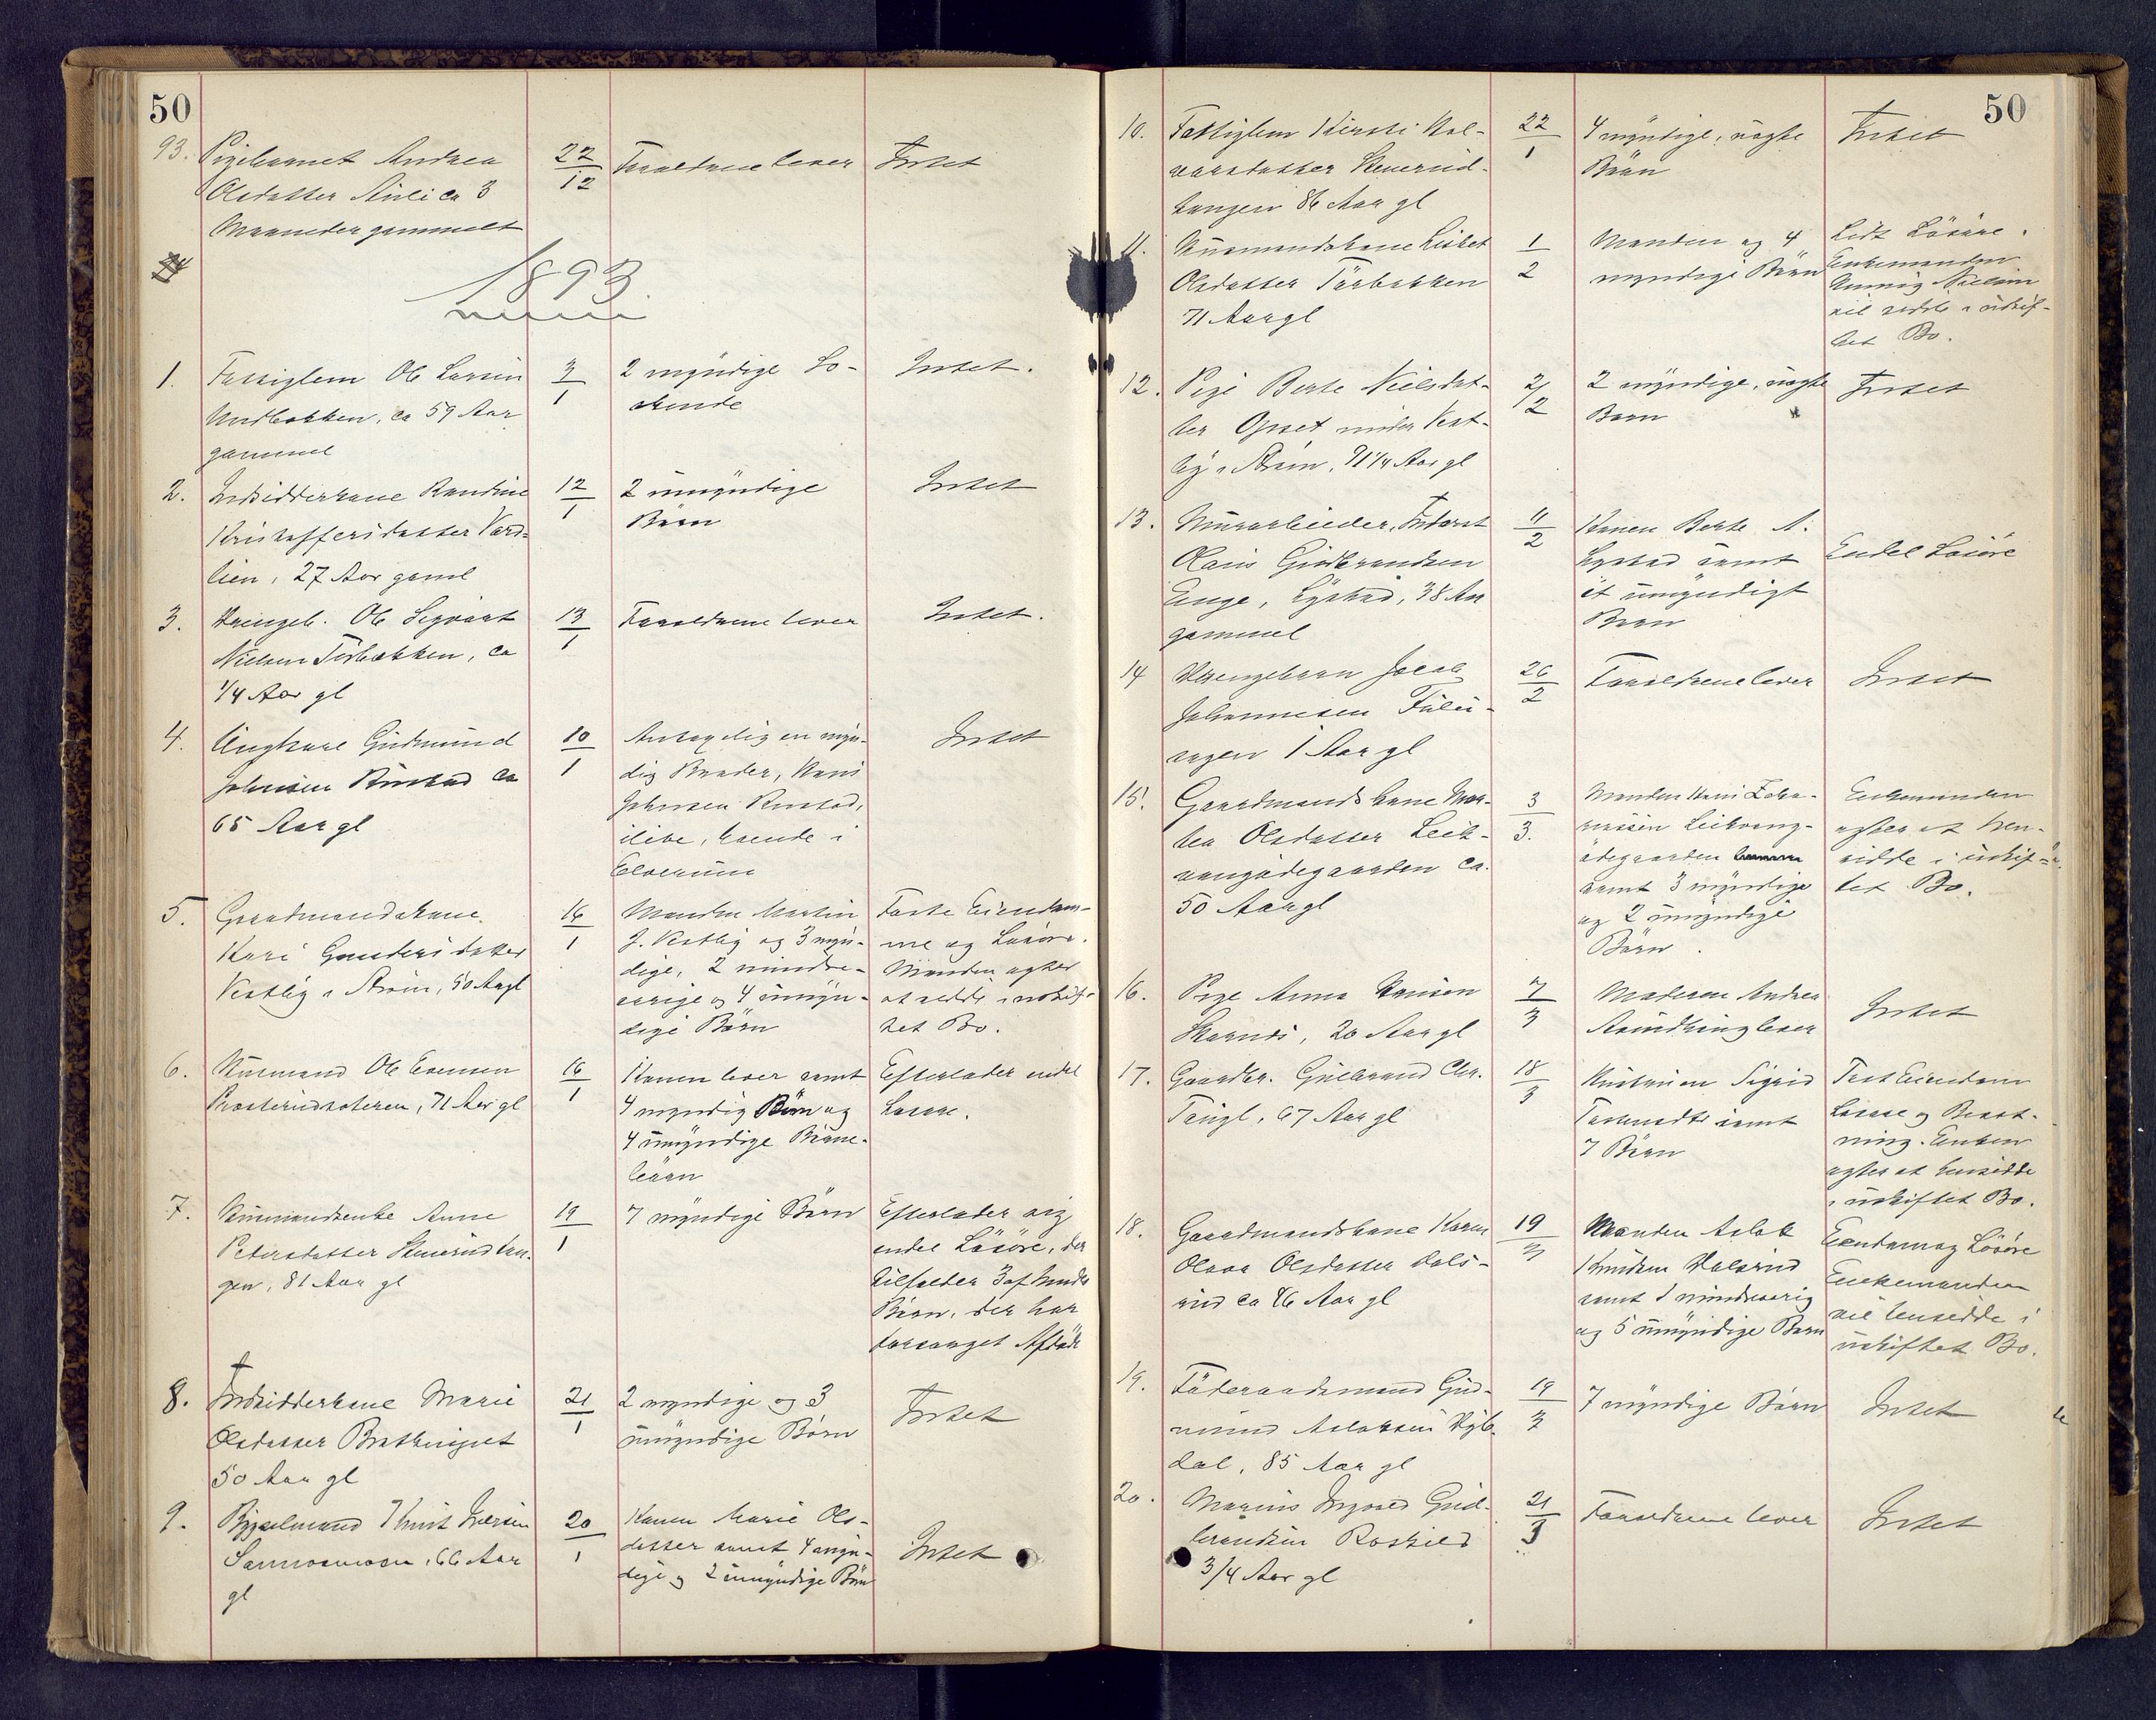 50
93.
Pigebarnet Andrea
Olsdatter Auli ca 3
Maaneder gammelt
22/12
Forældrene lever
Intet
1893.
1.
Fattiglem Ole Larsen
Mudbakken, ca 59 Aar
gammel
3/1
2 myndige Sø-
skende
Intet.
2.
Indsidderkone Randine
Kristoffersdatter Vard-
lien, 27 Aar gaml
12/1
2 umyndige
Børn
Intet
3.
Drengeb. Ole Sigvart
Nielsen Tørbakken, ca
1/4 Aar gl
13/1
Forældrene lever
Intet.
4.
Ungkarl Gudmund
Johnsen Rustad ca
65 Aar gl
10/1
Antagelig en myn-
dig Broder, Hans
Johnsen Rustad,
ilive, boende i
Elverum
Intet
5.
Gaardmandskone
Kari Gundersdatter
Vestby i Strøm, 50 Aar gl
16/1
Manden Martin
J. Vestby og 3 myn-
dige, 2 mindre-
aarige og 4 umyn-
dige Børn
Faste Eiendom-
me og Løsøre.
Manden agter
at sidde i uskif-
tet Bo.
6.
Husmand Ole Evensen
71 Aar gl
16/1
Konen lever samt
4 myndig Børn og
4 umyndige Børne-
børn
Efterlader endel
Løsøre.
7.
Husmandsenke Anne
Pedersdatter Skuerudtan-
gen, 81 Aar gl
19/1
7 myndige Børn
Efterlader sig
endel Løsøre, der
tilfalder 3 af hendes
Børn, der har
forsørget Afdøde
8.
Indsidderkone Marie
Olsdatter
50 Aar gl
21/1
2 myndige og 3
umyndige Børn
Intet
9.
Bygselmand Knut Iversen
66 Aar
gl
20/1
Konen Marie Ols-
datter samt 4 myn-
dige og 2 umyndige Børn
Intet
50
10.
Fattiglem Kirsti Hal-
vorsdatter Skuerud-
tangen 86 Aar gl
22/1
4 myndige, uægte
Børn
Intet
11.
Husmandskone Lisbet
Olsdatter Tørbakken
71 Aar gl
1/2
Manden og 4
myndige Børn
Lidt Løsøre.
Enkemanden
Nielsen
vil sidde i uskif-
tet Bo.
12.
Pige Berte Nielsdat-
ter Opset under Vest-
by i Strøm, 71 1/4 Aar gl
2/2
2 myndige, uægte
Børn
Intet
13.
Murarbeider, Inderst
Olaus Gudbrandsen
Enge, Lystad, 38 Aar
gammel
11/2
Konen Berte A.
Lystad samt
et umyndigt
Barn
Endel Løsøre
14
Drengebarn Jacob
Johannesen Fulu-
1 Aar gl
26/2
Forældrene lever
Intet
15.
Gaardmandskone Mar-
tea Olsdatter Leir-
vangødegaarden ca.
50 Aar gl
3/3.
Manden Hans Zaka-
riassen Leirvang-
ødegaarden
samt 3 myndige
og 2 umyndige
Børn.
Enkemanden
agter at hen-
sidde i uskif-
tet Bo.
16.
Pige Anna Hansen
Skarnes, 20 Aar gl
7/3
Moderen Andrea
lever
Intet
17.
Gaardbr. Gulbrand Chr.
67 Aar gl
18/3
Hustruen Sigrid
samt
7 Børn
Fast Eiendom
Løsøre og Besæt-
ning. Enken
agter at hensidde
i uskiftet Bo.
18.
Gaardmandskone Karen
Olava Olsdatter Hals-
rud ca 46 Aar gl
19/3
Manden Aslak
Knudsen Halsrud
samt 1 mindreaarig
og 5 umyndige Børn
Eiendom og Løsøre
Enkemanden
vil hensidde i
uskiftet Bo.
19.
Føderaadsmand Gud-
mund Aslaksen Myk-
dal, 85 Aar gl
19/3
7 myndige Børn
Intet
20.
Marius Ingvald Gud-
brandsen Roskild
3/4 Aar gl
21/3
Forældrene lever
Intet